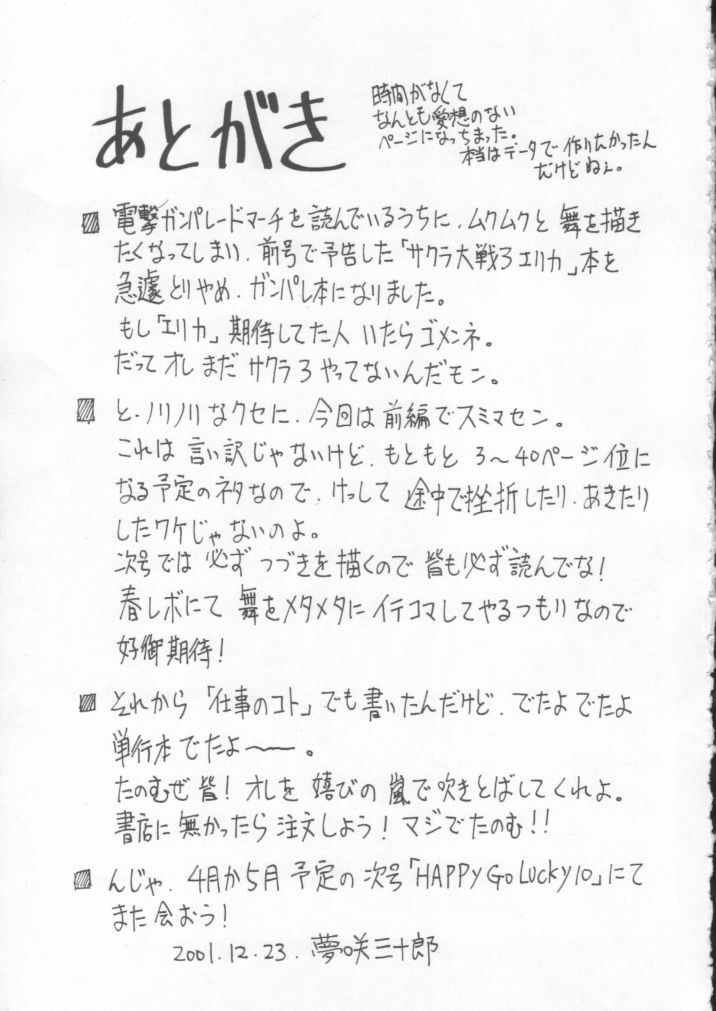 あとがき
時間がなくて
なんとも愛想のない
ページになっちまった。
本当はデータで作りたかったん
だけどねぇ。
電撃ガンパレードマーチを読んでいるうちに、ムクムクと舞を描き
たくなってしまい、前号で予告した「サクラ大戦3エリカ」本を
急遽とりやめ、ガンパレ本になりました。
もし「エリカ」期待してた人いたらゴメンネ。
だってオレまだサクラ3やってないんだモン。
と、ノリノリなクセに、今回は前編でスミマセン。
これは言い訳じゃないけど、もともと3〜40ページ位に
なる予定のネタなので、けっして途中で挫折したり、あきたり
したワケじゃないのよ。
次号では必ずつづきを描くので皆も必ず読んでな!
春レボにて舞をメタメタにイテコマしてやるつもりなので
好御期待!
それから「仕事のコト」でも書いたんだけど、でたよでたよ
単行本でたよ〜〜。
たのむぜ皆!オレを嬉びの嵐で吹きとばしてくれよ。
書店に無かったら注文しよう!マジでたのむ!!
んじゃ、4月か5月予定の次号「HAPPY Go Lucky10」にて
また会おう!
2001.12.23.夢咲三十郎